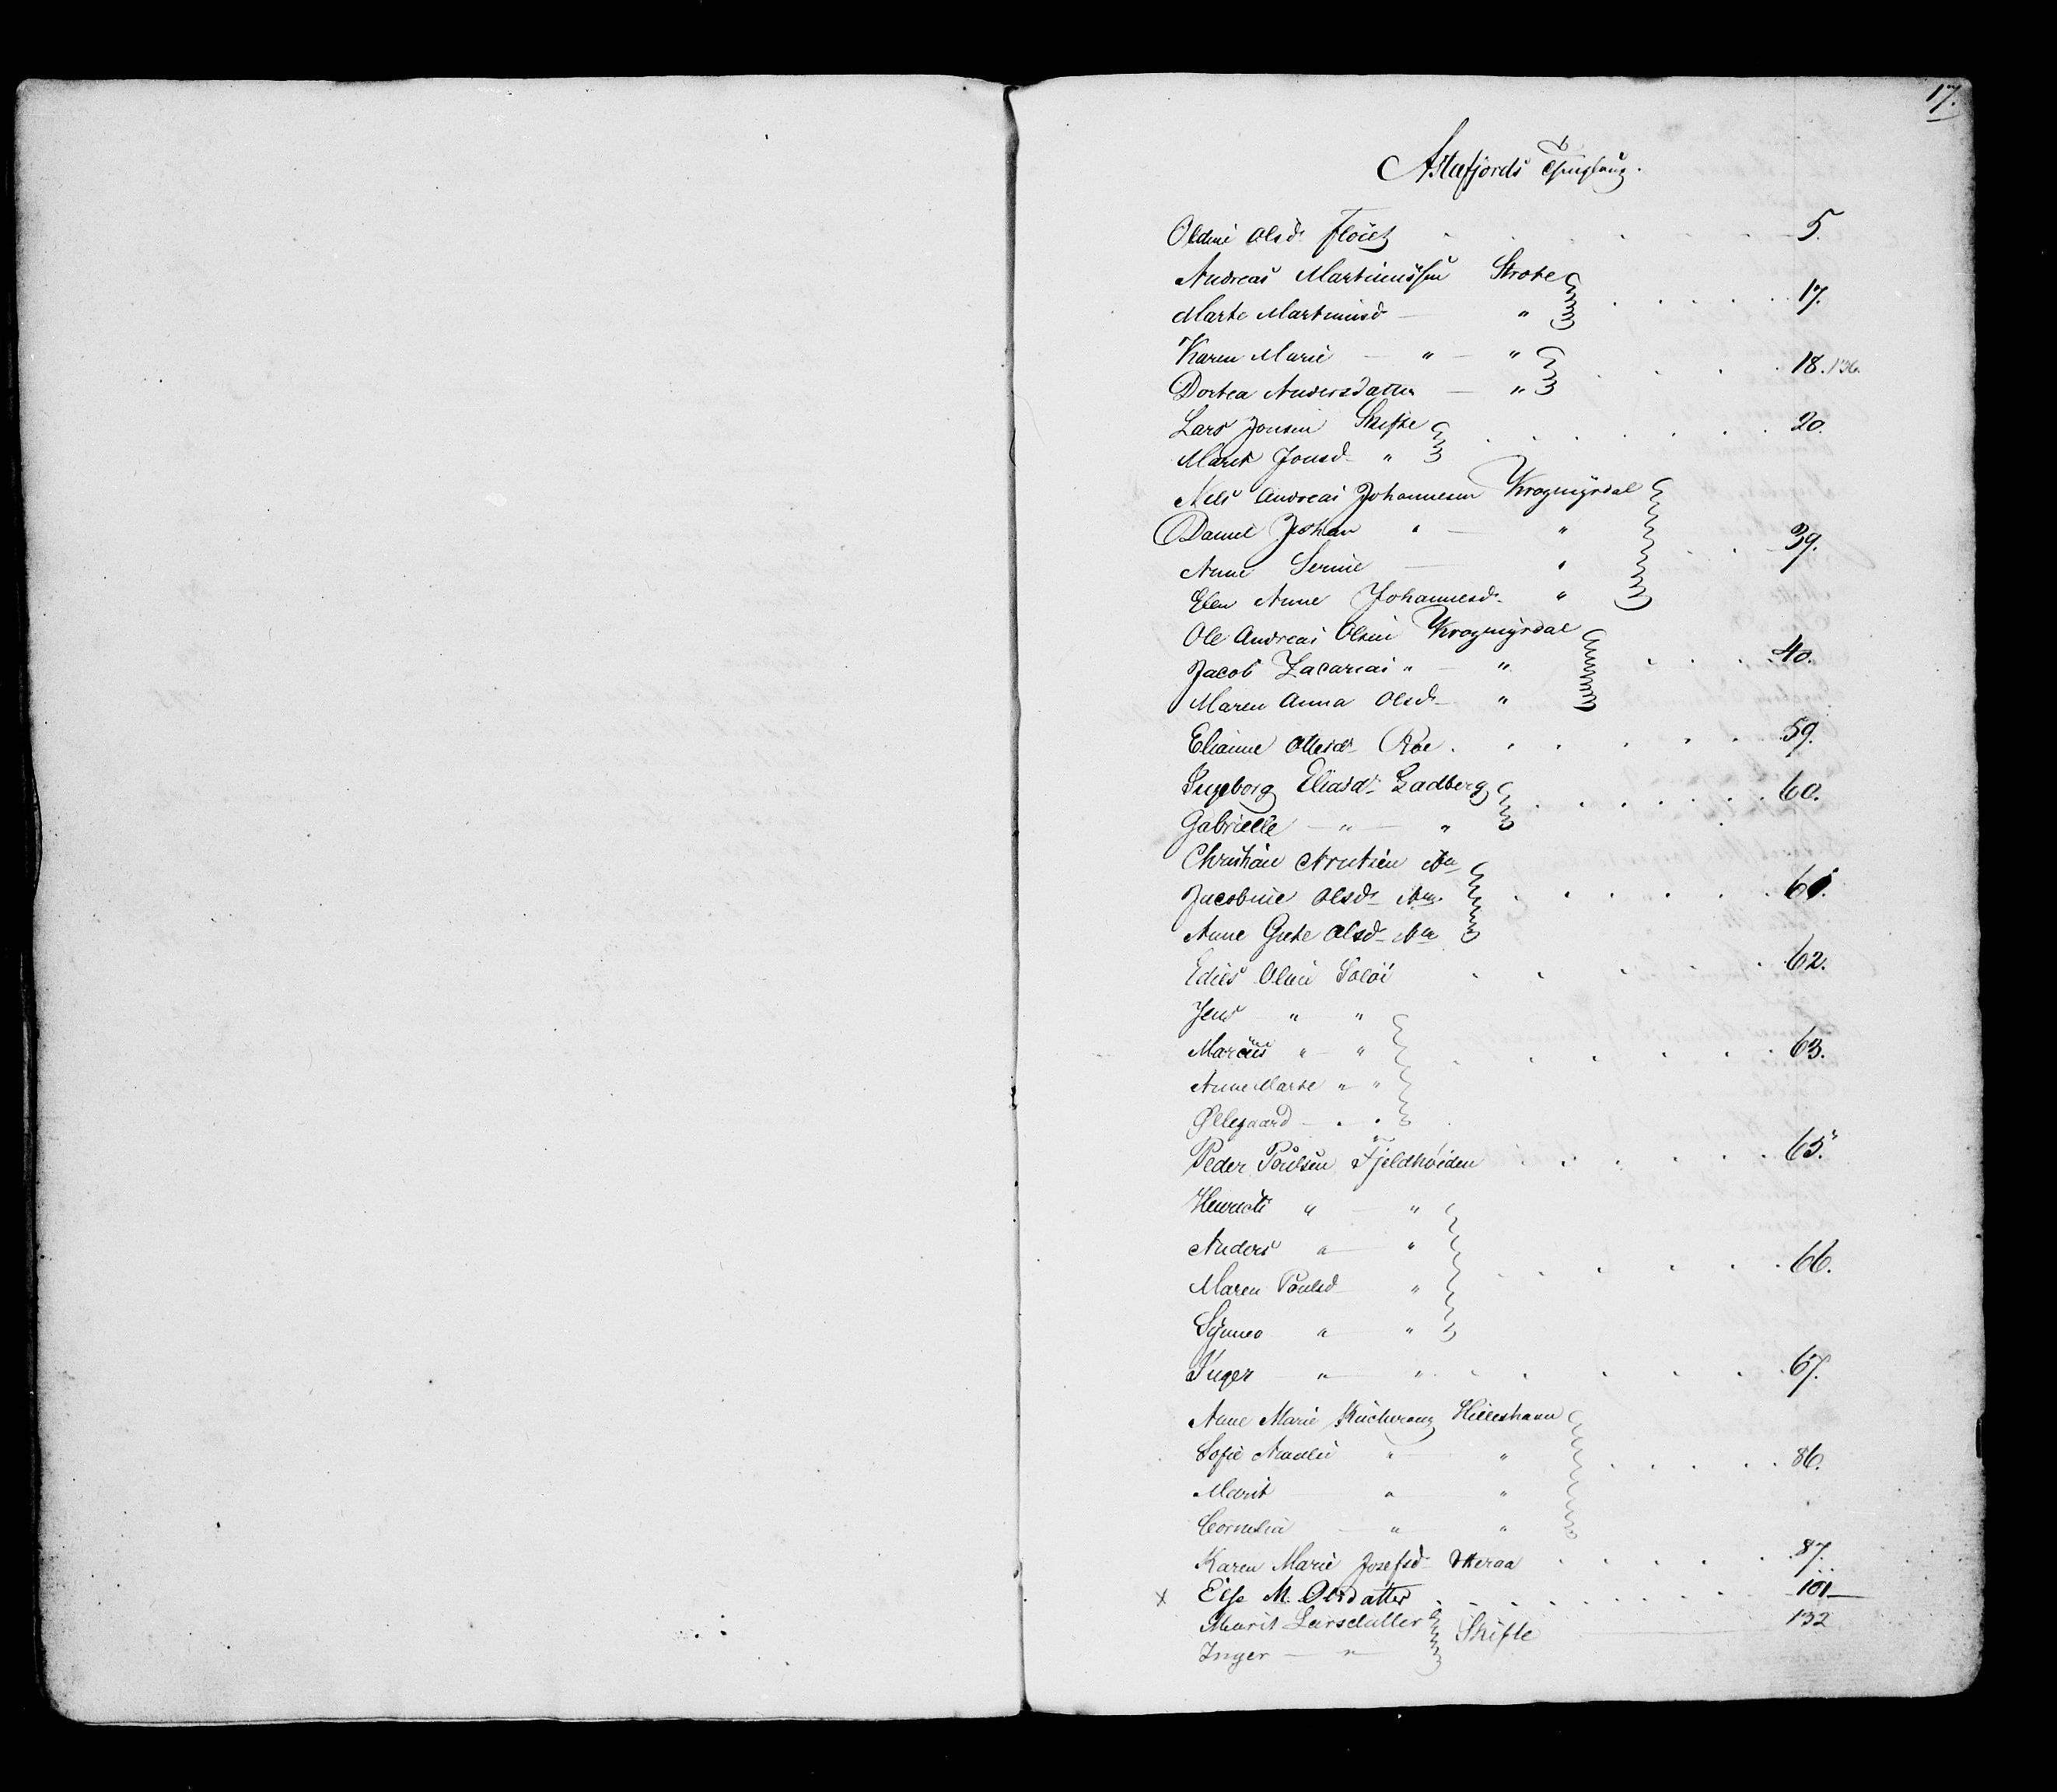 17.
Astafjords Thinglaug.
Oldine Olsd. Fløiet . . . . . 5.
Andreas Martinussen Strote
Marte Martinusd — " . . . . . 17.
Karen Marie — " — "
Dortea Andersdatter — " . . . . 18. 136.
Lars Jonsen Skifte . . . . . . 20.
Marit Jonsd — "
Nels Andreas Johannesen Krogmyrdal
Daniel Johan " — "
Anne Serine — " . . . 39.
Elen Anne Johannesd. "
Ole Andreas Olsen Krogmyrdal
Jacob Zacarias " — " . . . . 40.
Maren Anna Olsd — "
Elianne Ottesd. Roe . . . . . . 59.
Ingeborg Eliasd. Ladberg . . . . . . 60.
Gabrielle — " — "
Christian Arntsen Aa
Jacobine Olsd. Aa . . . . . 61.
Anne Grete Olsd. Aa
Edias Olsen Soløi . . . . . 62.
Jens — " — "
Marcus " — " . . . . . . 63.
Anne Marte " — "
Øllegaard — " . "
Peder Poulsen Fjeldhøiden . . . . . . 65.
Henrich " — "
Anders " — "
Maren Poulsd — " . . . . . . 66.
Synneo " — "
Inger — " — " . . . . . 67.
Anne Marie Hilleshavn
Sofie " — " . . . . . 86.
Marit — " — "
Cornelia — " — "
Karen Marie Josefsd. . . . . . 87.
x Else M. Olsdatter . . . . . . . . 101
Marit Larsdatter Skifte — 132
Inger — " —